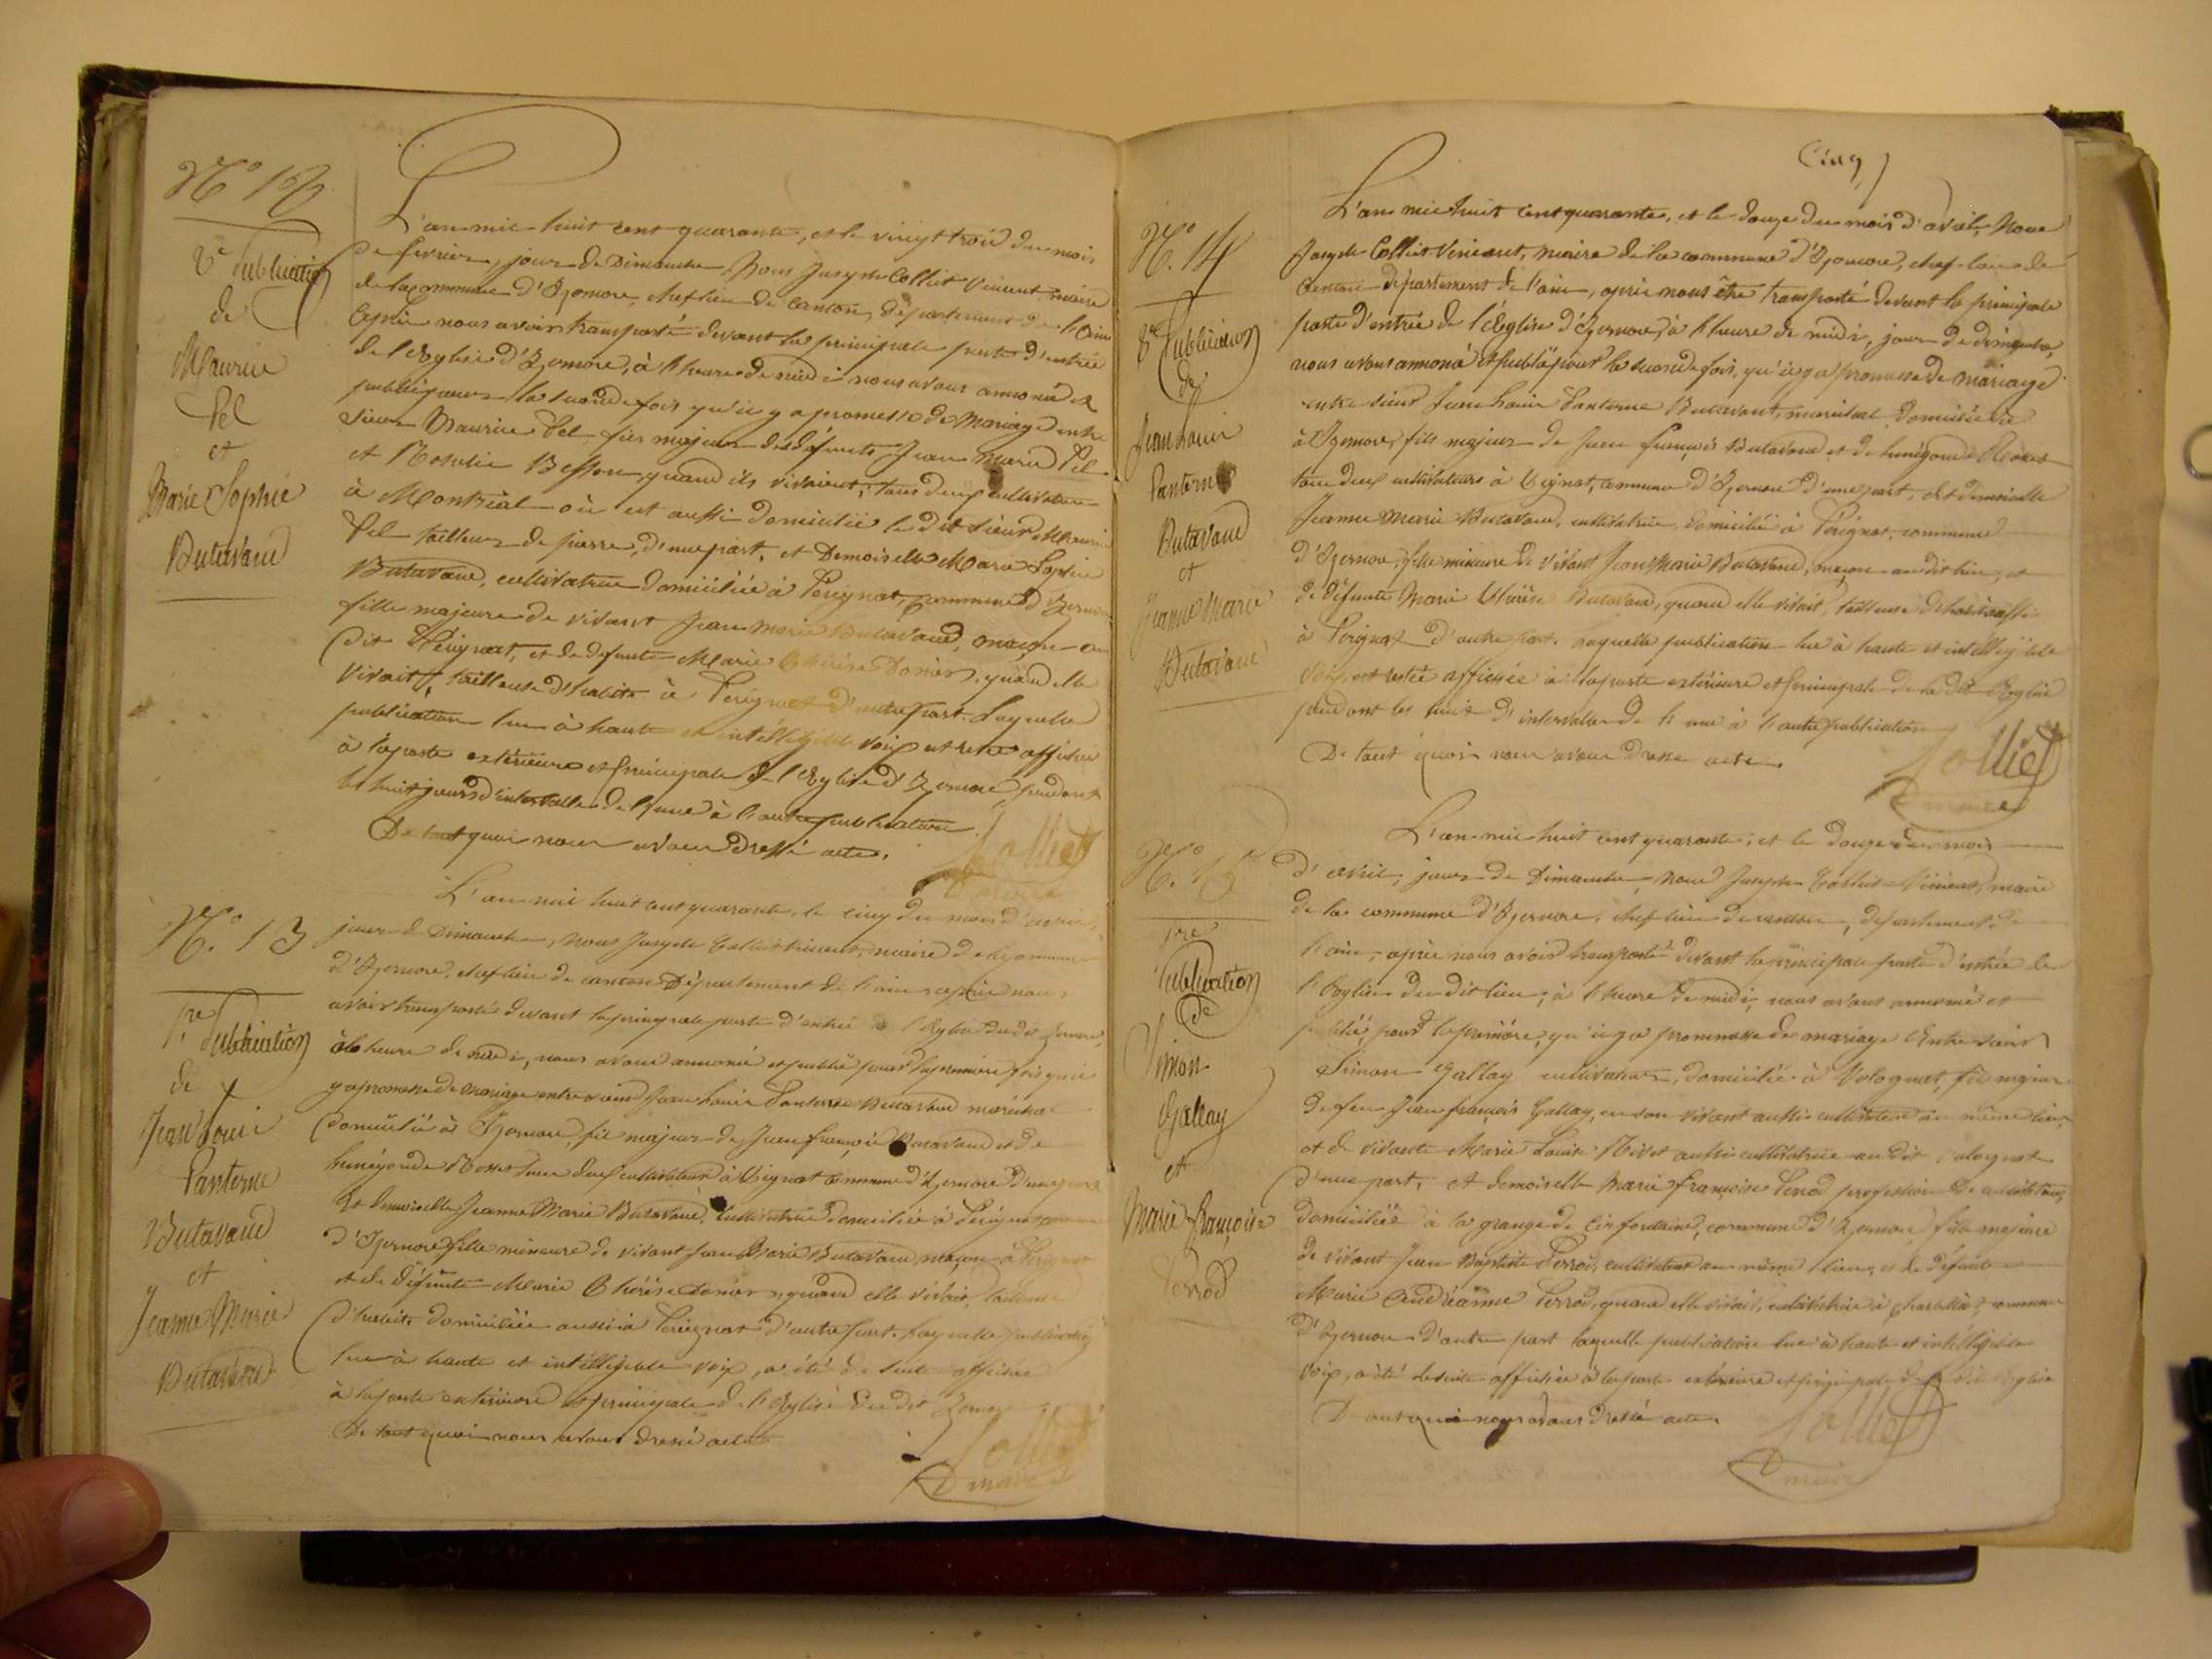 N.° 12
2e Publication
de
Maurice
Pel
et
Marie Sophie
Butavand
L'an mil huit cent quarante, et le vingt trois du mois
de fevrier, jour de Dimanche, Nous Joseph Colliet Vincent, maire
de la commune d'Izernore, chef lieu de Canton, Département de l'Ain
Après nous avoir transporté devant la principale porte d'entrée
de l'Eglise d'Izernore, à l'heure de midi nous avons annoncé et
publié pour la seconde fois qu'il y a promesse de Mariage entre
Sieur Maurice Pel fils majeur des défunts Jean Marie Pel
et Rosalie Besson, quand ils vivaient, tous deux cultivateurs
à Montréal où est aussi domicilié le dit Sieur Maurice
Pel tailleur de pierre, d'une part, et Demoiselle Marie Sophie
Butavand, cultivatrice domiciliée à Pérignat, commune d'Izernore
fille majeure de vivant Jean Marie Butavand, maçon au
dit Pérignat, et de defunte Marie Thérèse Domer, quand elle
vivait, tailleuse d'habits à Pérignat d'autre part. Laquelle
publication lue à haute et intelligible voix est restée affichée
à la porte extérieure et principale de l'Eglise d'Izernore pendant
les huit jours d'intervalle de l'une à l'autre publication.
De tout quoi nous avons dressé acte.
Colliet
maire
N.° 13
1re Publication
de
Jean Louis
Panterne
Butavand
et
Jeanne Marie
Butavand
L'an mil huit cent quarante, le cinq du mois d'avril,
jour de Dimanche, Nous Joseph Colliet Vincent, maire de la commune
d'Izernore, chef lieu de canton Département de l'ain après nous
avoir transporté devant la principale porte d'entrée de l'Eglise du dit Izernore,
à l'heure de midi, nous avons annoncé et publié pour la premiere fois qu'il
y a promesse de mariage entre sieur Jean Louis Panterne Butavand maréchal
domicilié à Izernore, fils majeur de Jean françois Butavand et de
Cunégonde Rosset tous deux cultivateurs à Vignat commune d'Izernore d'une part
Et Demoiselle Jeanne Marie Butavand, Cultivatrice domiciliée à Pérignat commune
d'Izernore fille mineure de vivant Jean Marie Butavand maçon à Pérignat
et de défunte Marie Thérèse Domer, quand elle vivait, tailleuse
d'habits domiciliée aussi à Pérignat d'autre part. Laquelle publication
lue à haute et intélligible voix, a été de suite affichée
à la porte extérieure et principale de l'Eglise du dit Izernore
De tout quoi nous avons dressé acte
Colliet
maire
Cinq
N.° 14
2e Publication
de
Jean Louis
Panterne
Butavand
et
Jeanne Marie
Butavand
L'an mil huit cent quarante, et le douze du mois d'avril, Nous
Joseph Colliet Vincent, maire de la commune d'Izernore, chef-lieu de
Canton département de l'ain, après nous être transporté devant la principale
porte d'entrée de l'Eglise d'Izernore, à l'heure de midi, jour de dimanche,
nous avons annoncé et publié pour la seconde fois, qu'il y a promesse de mariage
entre sieur Jean Louis Panterne Butavand, maréchal domicilié
à Izernore, fils majeur de Jean françois Butavand et de Cunégonde Rosset
tous deux cultivateurs à Vignat, commune d'Izernore d'une part, et demoiselle
Jeanne Marie Butavand, cultivatrice, domiciliée à Pérignat, commune
d'Izernore, fille mineure de vivant Jean Marie Butavand, maçon au dit lieu, et
de défunte Marie Thérèse Butavand, quand elle vivait, tailleuse d'habits aussi
à Pérignat d'autre part. Laquelle publication lue à haute et intelligible
voix, est restée affichée à la porte extérieure et principale de la dite Eglise
pendant les huit d'intervalle de l'une à l'autre publication
De tout quoi nous avons dressé acte.
Colliet
maire
N.° 15
1re
Publication
de
Simon
Gallay
et
Marie françoise
Perrod
L'an mil huit cent quarante, et le douze du mois
d'avril, jour de Dimanche, Nous Joseph Colliet Vincent, maire
de la commune d'Izernore, chef lieu de canton, département de
l'ain, après nous avoir transporté devant la principale porte d'entrée de
l'Eglise du dit lieu, à l'heure de midi, nous avons annoncé et
publié, pour la première, qu'il y a prommesse de mariage Entre sieur
Simon Gallay cultivateur, domicilié à Volognat, fils majeur
de feu Jean françois Gallay, en son vivant aussi cultivateur au même lieu,
et de vivante Marie Louise Nivet aussi cultivatrice au dit Volognat
d'une part, et demoiselle Marie françoise Perrod profession de cultivatrice,
domiciliée à la grange de fontaine, commune d'Izernore fille majeure
de vivant Jean Baptiste Perrod, cultivateur au même lieu, et de défunte
Marie Andréanne Perrod, quand elle vivait, cultivatrice à Charbillat, commune
d'Izernore d'autre part laquelle publication lue à haute et intélligible
voix, a été de suite affichée à la porte extérieure et principale de la dite Eglise
De tout quoi nous avons dressé acte.
Colliet
maire